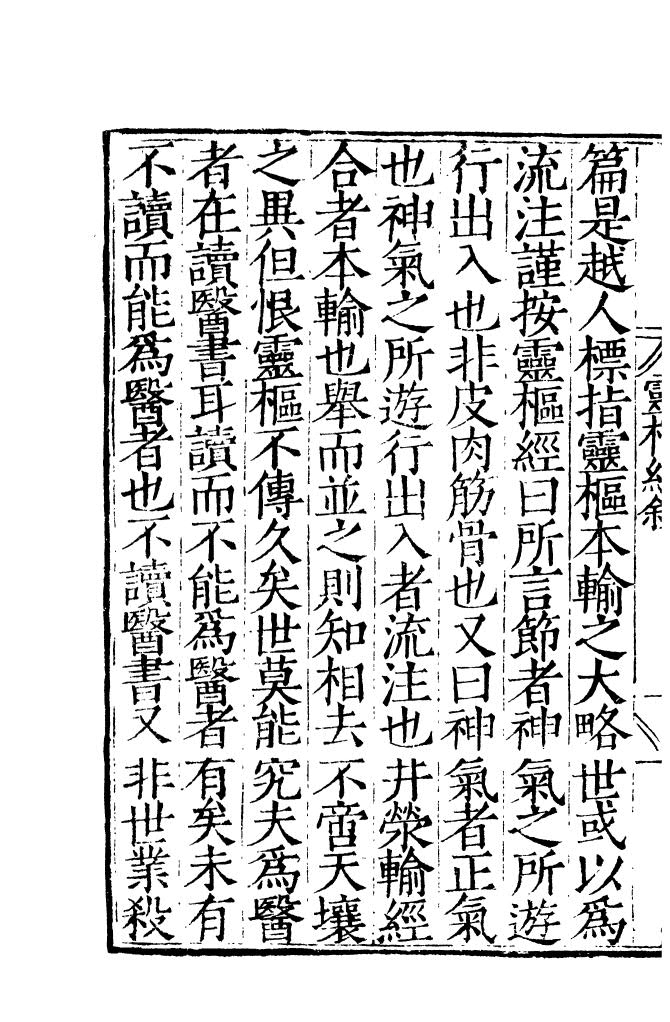 靈樞經敘
篇是越人標指靈樞本輸之大略世或以爲
流注謹按靈樞經曰所言節者神氣之所遊
行出入也非皮肉筋骨也又曰神氣者正氣
也神氣之所遊行出入者流注也井滎輸經
合者本輸也舉而並之則知相去不啻天壤
之異但恨靈樞不傳久矣世莫能究夫爲醫
者在讀醫書耳讀而不能爲醫者有矣未有
不讀而能爲醫者也不讀醫書又非世業殺